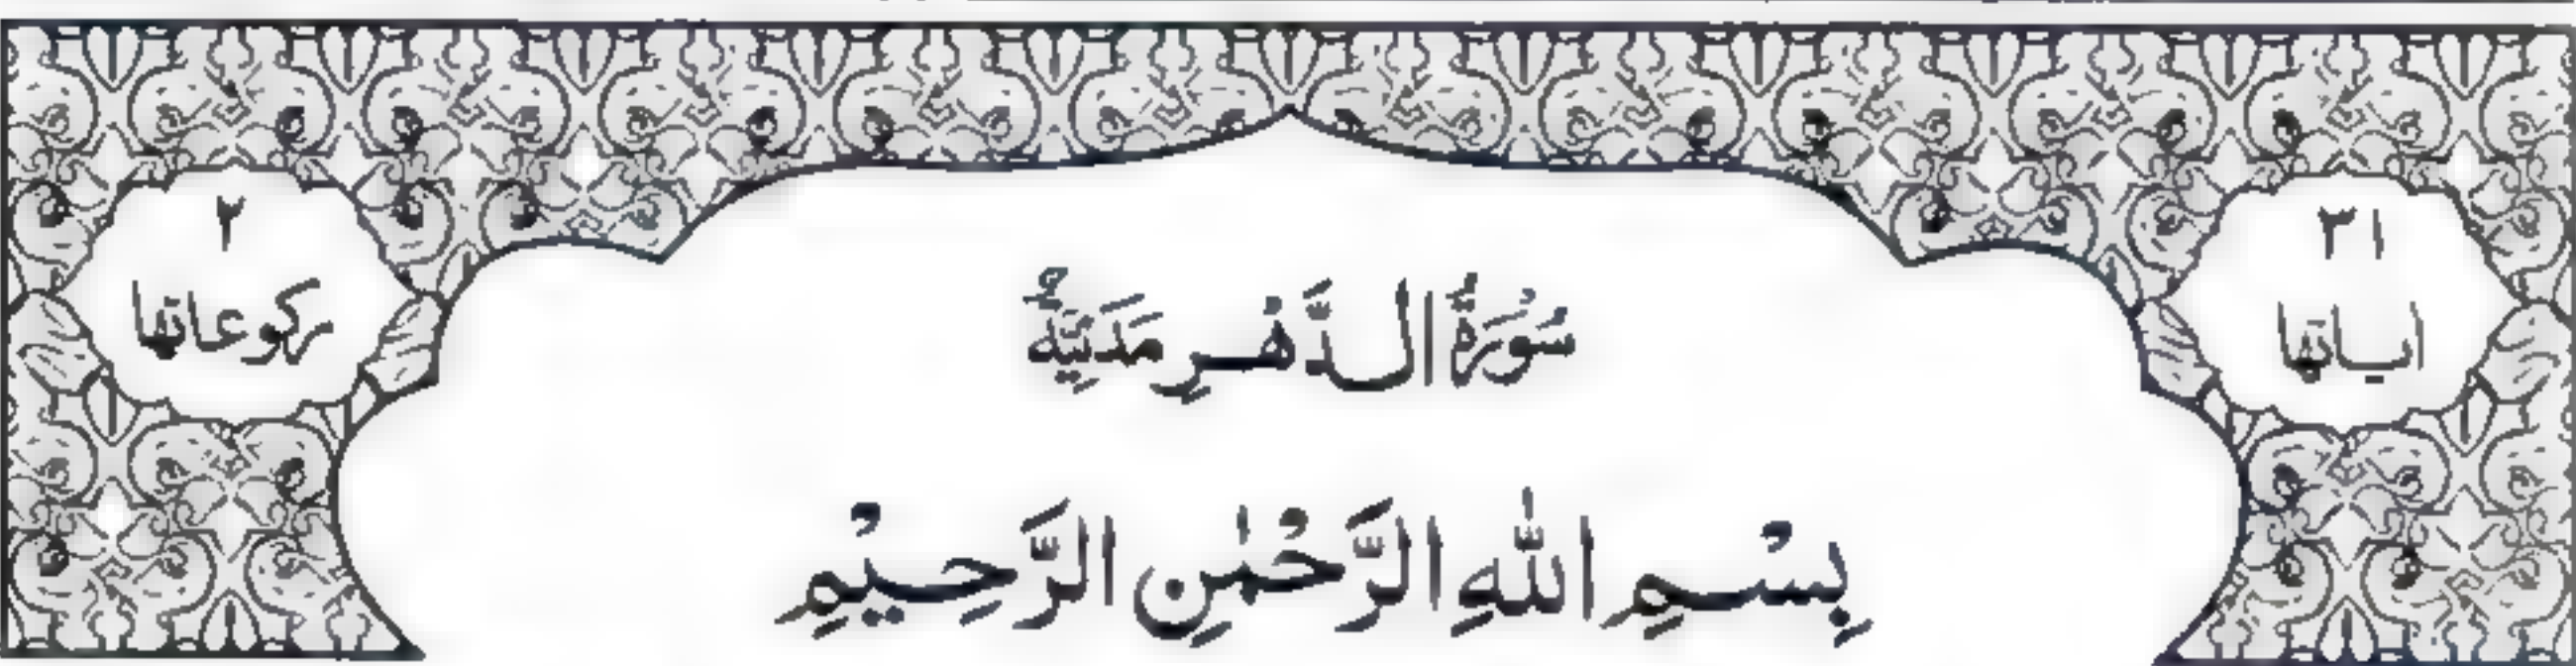 ٣١
اٰیاتها
سُوْرَةُ الدَّهْرِ مَدَنِيَّةٌ
٢
ركوعاتها
بِسْمِ اللّٰهِ الرَّحْمٰنِ الرَّحِيْمِ